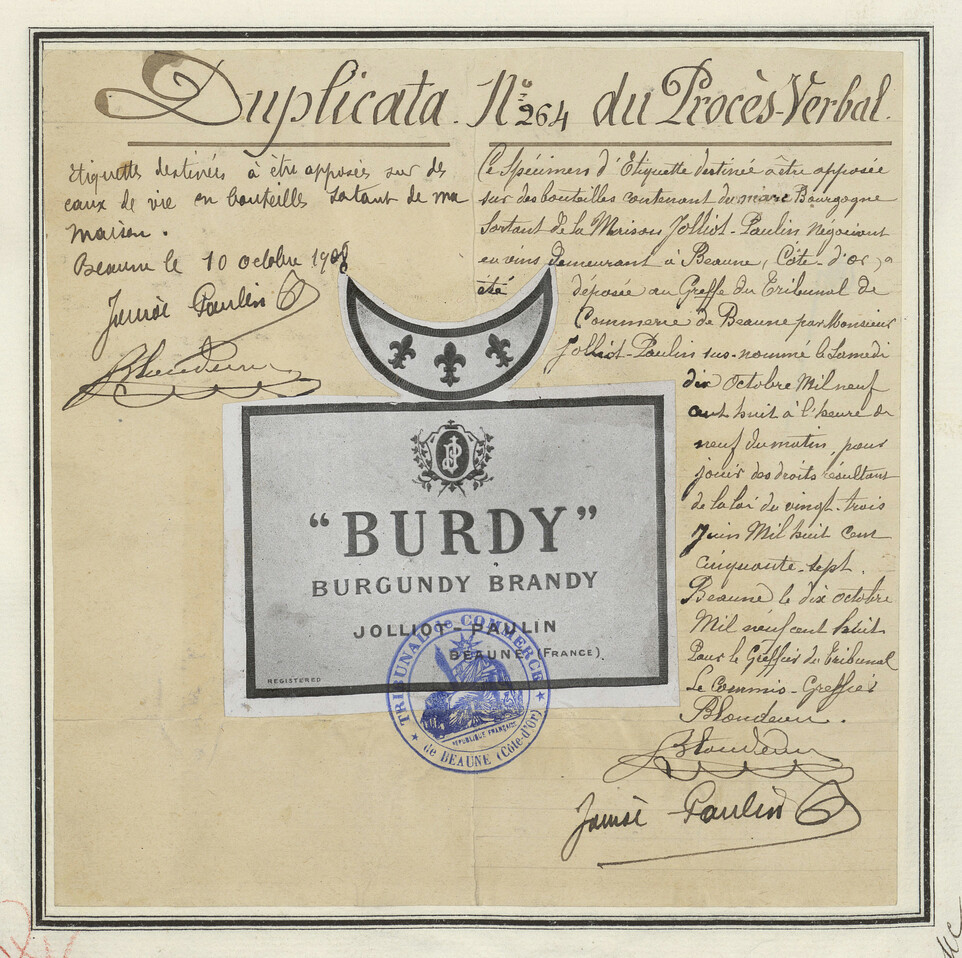 Duplicata. No 264 du Procès-Verbal.
Etiquettes destinées à être apposées sur des
eaux de vie en bouteilles sortant de ma
maison.
Beaune le 10 octobre 1908
Paulin
Blondeau
Ce Spécimens d'Etiquette destinée à être apposée
sur des bouteilles contenant du marc Bourgogne
Sortant de la Maison Jolliot-Paulin Négociant
en vins demeurant à Beaune, (Côte-d'or) a
été déposée au Greffe du Tribunal de
Commerce de Beaune par Monsieur
Jolliot-Paulin sus-nommé le Samedi
dix Octobre Mil neuf
cent huit à l'heure de
neuf du matin, pour
jouir des droits résultant
de la loi du vingt-trois
Juin Mil huit cent
cinquante-sept.
Beaune le dix octobre
Mil neuf cent huit
Pour le Greffier du Tribunal
Le Commis-Greffier
Blondeau.
Blondeau
Paulin
"BURDY"
BURGUNDY BRANDY
JOLLIOT-PAULIN
BEAUNE (FRANCE)
REGISTERED
TRIBUNAL de COMMERCE
REPUBLIQUE FRANÇAISE
de BEAUNE (Côte-d'Or)